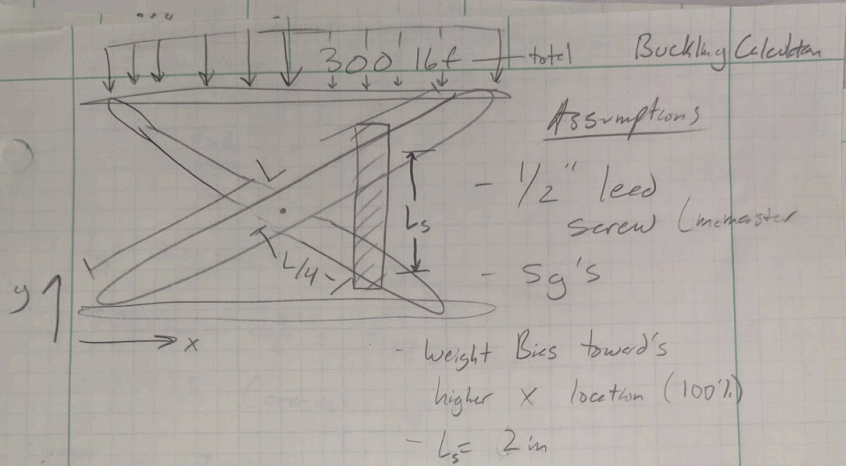 300 lbf total
Buckling Calculation
Assumptions
L
Ls
L/4
y
x
- 1/2" lead
screw (mcmaster
- 5g's
- Weight Bias toward's
higher x location (100%)
- Ls= 2 in